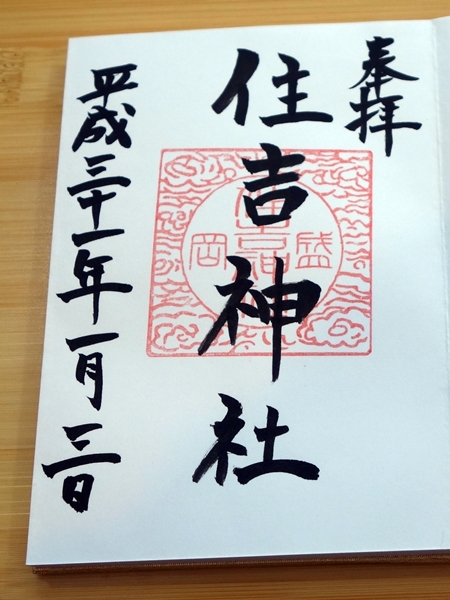 奉拝
住吉神社
盛岡
平成三十一年一月三日